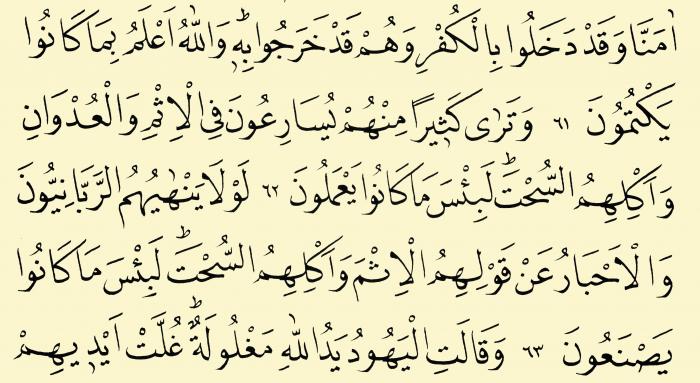 اٰمَنَّا وَقَدْ دَخَلُوا بِالْكُفْرِ وَهُمْ قَدْ خَرَجُوا بِهٖؕ وَاللّٰهُ اَعْلَمُ بِمَا كَانُوا
يَكْتُمُونَ ٦١ وَتَرٰى كَثٖيرًا مِنْهُمْ يُسَارِعُونَ فِى الْاِثْمِ وَالْعُدْوَانِ
وَاَكْلِهِمُ السُّحْتَؕ لَبِئْسَ مَا كَانُوا يَعْمَلُونَ ٦٢ لَوْلَا يَنْهٰيهُمُ الرَّبَّانِيُّونَ
وَالْاَحْبَارُ عَنْ قَوْلِهِمُ الْاِثْمَ وَاَكْلِهِمُ السُّحْتَؕ لَبِئْسَ مَا كَانُوا
يَصْنَعُونَ ٦٣ وَقَالَتِ الْيَهُودُ يَدُ اللّٰهِ مَغْلُولَةٌؕ غُلَّتْ اَيْدٖيهِمْ